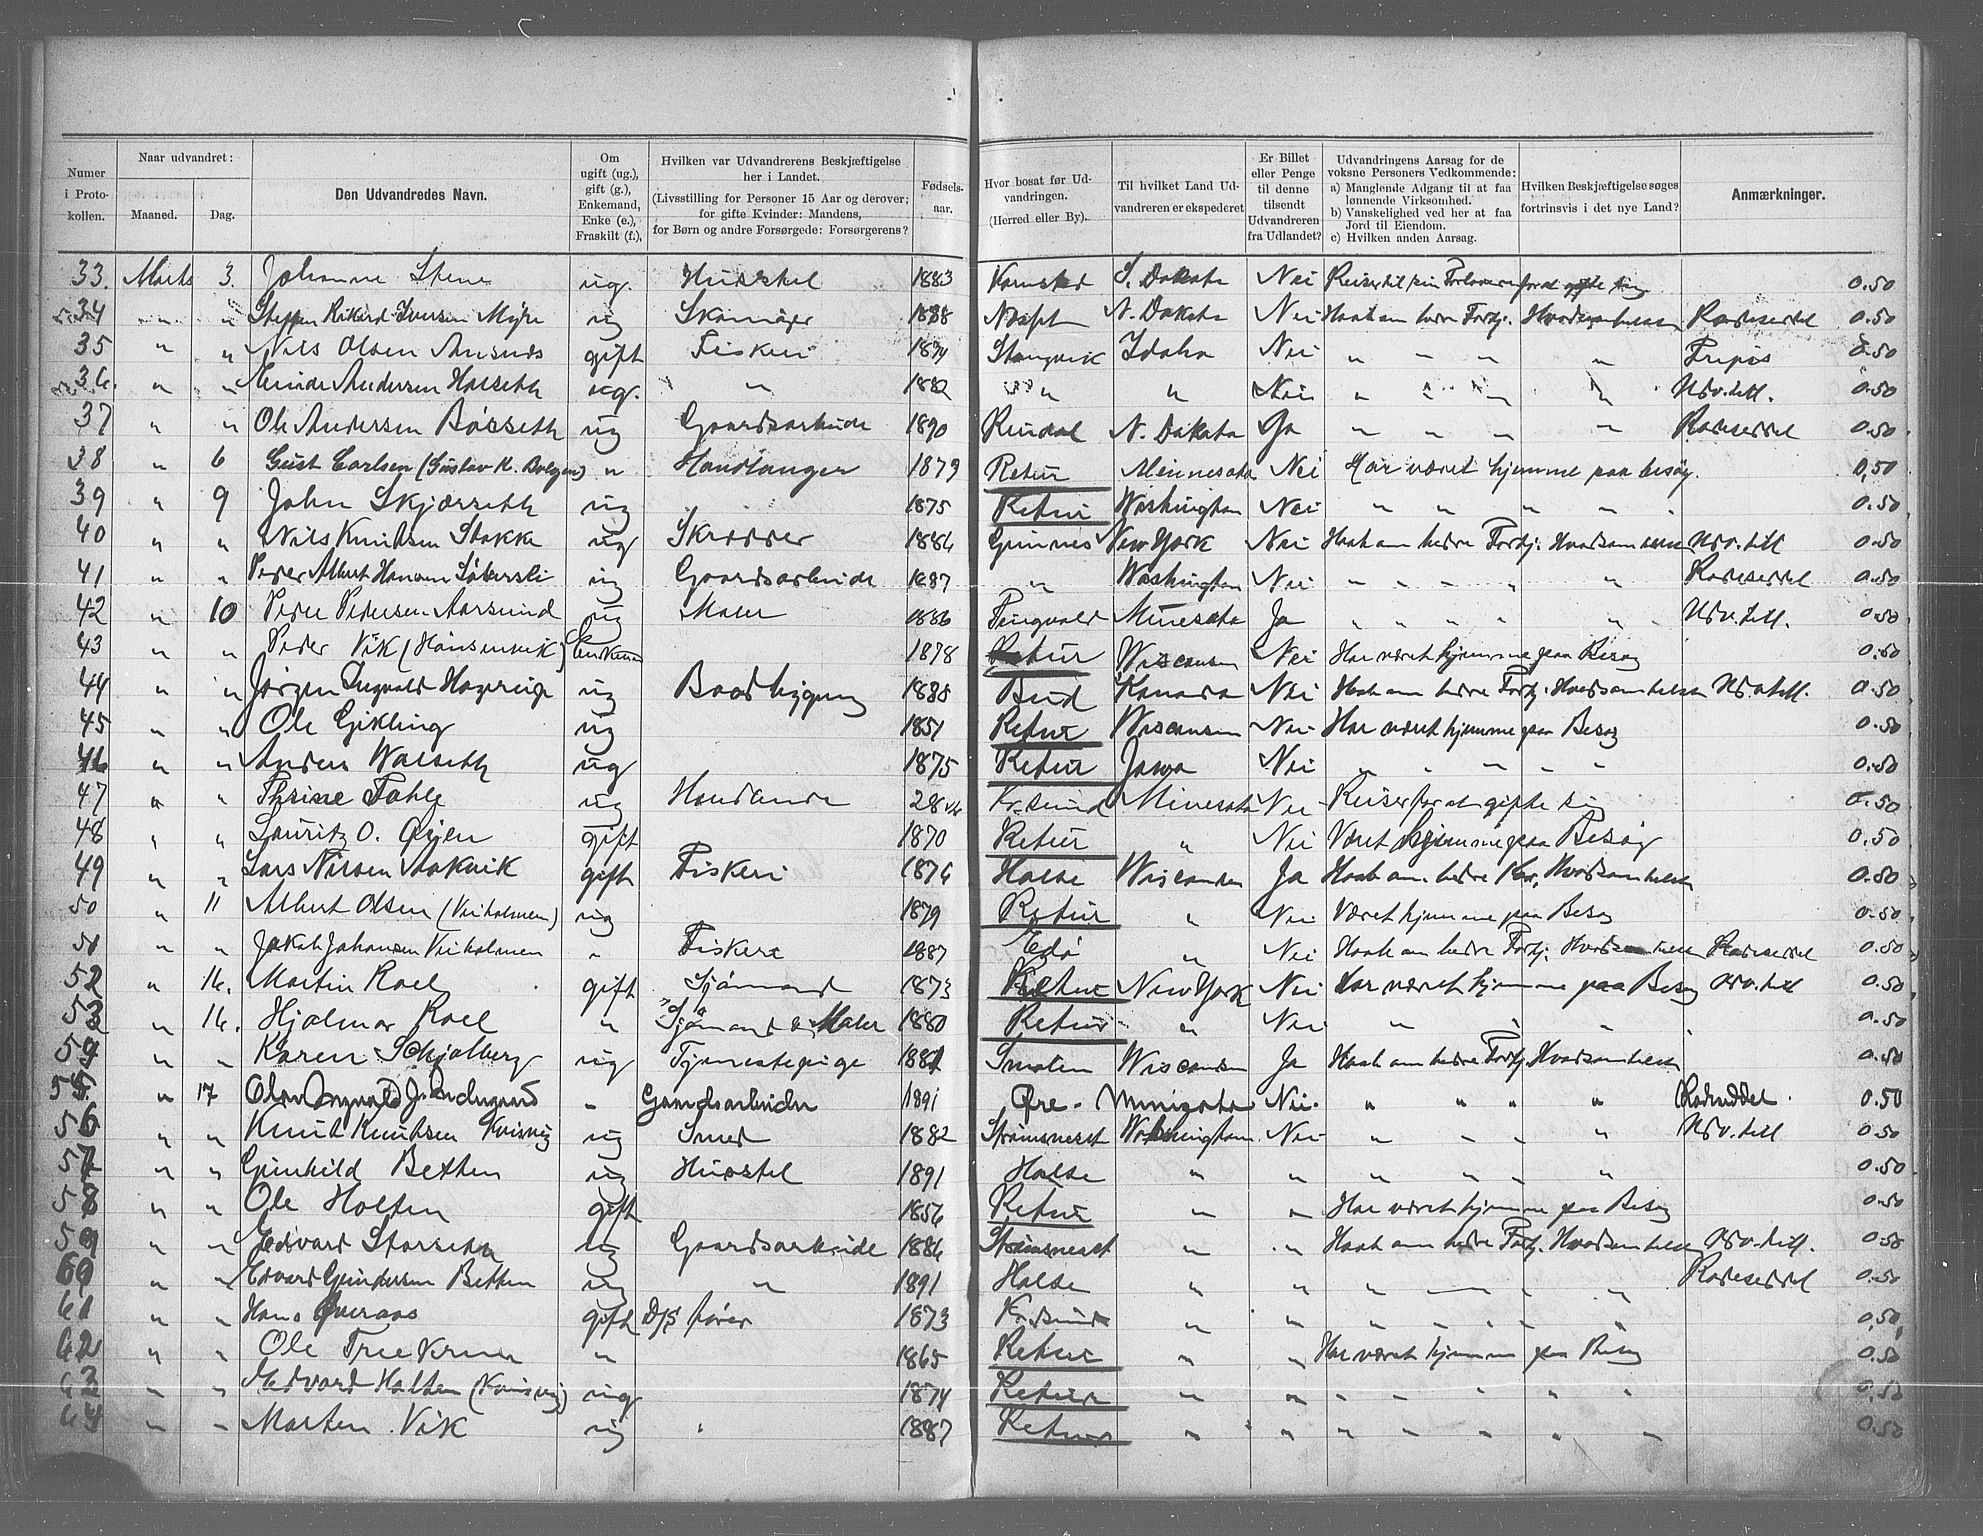 Numer i Protokollen. | Naar udvandret: Maaned. | Dag. | Den Udvandredes Navn. | Om ugift (ug.), gift (g.), Enkemand, Enke (e.), Fraskilt (f.), | Hvilken var Udvandrerens Beskjæftigelse her i Landet. (Livsstilling for Personer 15 Aar og derover; for gifte Kvinder: Mandens, for Børn og andre Forsørgede: Forsørgerens? | Fødselsaar. | Hvor bosat før Udvandringen. (Herred eller By). | Til hvilket Land Udvandreren er ekspederet | Er Billet eller Penge til denne tilsendt Udvandreren fra Udlandet? | Udvandringens Aarsag for de voksne Personers Vedkommende: a) Manglende Adgang til at faa lønnende Virksomhed. b) Vanskelighed ved her at faa Jord til Eiendom. c) Hvilken anden Aarsag. | Hvilken Beskjæftigelse søges fortrinsvis i det nye Land? | Anmærkninger.
33. Marts 3. Johanne Stene ug. Husstel 1883 S. Dakota Nei Reiser til sin Forlovede for at gifte sig 0.50
34 " " Steffen Rikard Iversen Myre ug Skomager 1888 N. Dakota Nei Haab om bedre Fortj. Hvadsomhelst Rodeseddel 0.50
35 " " Nils Olsen gift Fiskeri 1874 Stangvik Idaho Nei " " " " Fripas 0.50
36. " " Andersen Halseth ug. " 1882 " " Nei " " " " Udv. till. 0.50
37 " " Ole Andersen Bøsseth ug Gaardsarbeide 1890 Rindal N. Dakota Ja " " " " Rodeseddel 0.50
38 " 6 Gust Carlsen (Gustav K. Bolgen) " Haandlanger 1879 Retur Minnesota Nei Har været hjemme paa besøg. 0,50
39 " 9 John Skjærseth ug 1875 Retur Washington Nei " " " " 0.50
40 " " Nils Knudsen Stokke ug Skrædder 1886 Grinnes New York Nei Haab om bedre Fortj. Hvadsomhelst Udv. till 0.50
41 " " Peder Albert Hansen ug Gaardsarbeide 1887 " Washington Nei " " " " Rodeseddel 0.50
42 " 10 Peder Pedersen Aarsund ug Maler 1886 Tingvold Minesota Ja " " " " Udv. till. 0.50
43 " " Peder Vik (Hansenvik) Enkem 1878 Retur Wisconsin Nei Har været hjemme paa Besøg 0.50
44 " " Jørgen Ingvald ug Baadbygging 1888 Bud Kanada Nei Haab om bedre Fortj. Hvadsomhelst Udv. till. 0.50
45 " " Ole Gikling ug 1851 Retur Wisconsin Nei Har været hjemme paa Besøg 0.50
46 " " Anders Walseth ug 1875 Retur Jowa Nei " " " " 0.50
47 " " Thrine Fahle ug 28 år Kr.sund Minesota Nei Reiser for at gifte sig 0.50
48 " " Lauritz O. Øijen gift 1870 Retur " Nei Været hjemme paa Besøg 0.50
49 " " Lars Nilsen gift Fiskeri 1876 Halse Wisconsin Ja Haab om bedre Hvadsomhelst 0.50
50 " 11 Albert Olsen (Veiholmen) ug 1879 Retur " Nei Været hjemme paa Besøg 0.50
51 " " Jakob Johansen Veiholmen " Fiskeri 1887 Edø " Nei Haab om bedre Fortj. Hvadsomhelst Rodeseddel 0.50
52 " 16. Martin Roel gift Sjømand 1873 Retur New York Nei Har været hjemme paa Besøg Udv. till 0.50
53 " 16. Hjalmar Roel " Sjømand & Maler 1880 Retur " Nei " " " 0.50
54 " " Karen Schjølberg ug Tjenestepige 1881 Smølen Wisconsin Ja Haab om bedre Fortj. Hvadsomhelst 0.50
55. " 17 Olav Ingvald J. " Gaardsarbeider 1891 Øre Minisota Nei " " " " Rodeseddel 0.50
56 " " Knut Knutsen Kvisvig ug Smed 1882 Strømsneset Washington Nei " " " " Udv. till 0.50
57 " " Gunhild Betten ug Husstel 1891 Halse " " " " " 0.50
58 " " Ole Holten gift 1856 Retur " " Har været hjemme paa Besøg 0.50
59 " " Edvard Storseth ug Gaardsarbeide 1886 Strømsneset " " Haab om bedre Fortj. Hvadsomhelst Udv. till. 0.50
60 " " Edvard Gundersen Betten ug " 1891 Halse " " " " " Rodeseddel 0.50
61 " " Hans Øveraas gift D/S fører 1873 Kr.sund " " " " " " 0.50
62 " " Ole " 1865 Retur " " Har været hjemme paa Besøg 0.50
63 " " Edvard Holten (Kvisvig) ug 1874 Retur " " " " " " 0.50
64 " " Morten Vik ug " 1887 Retur " " " " " " 0.50